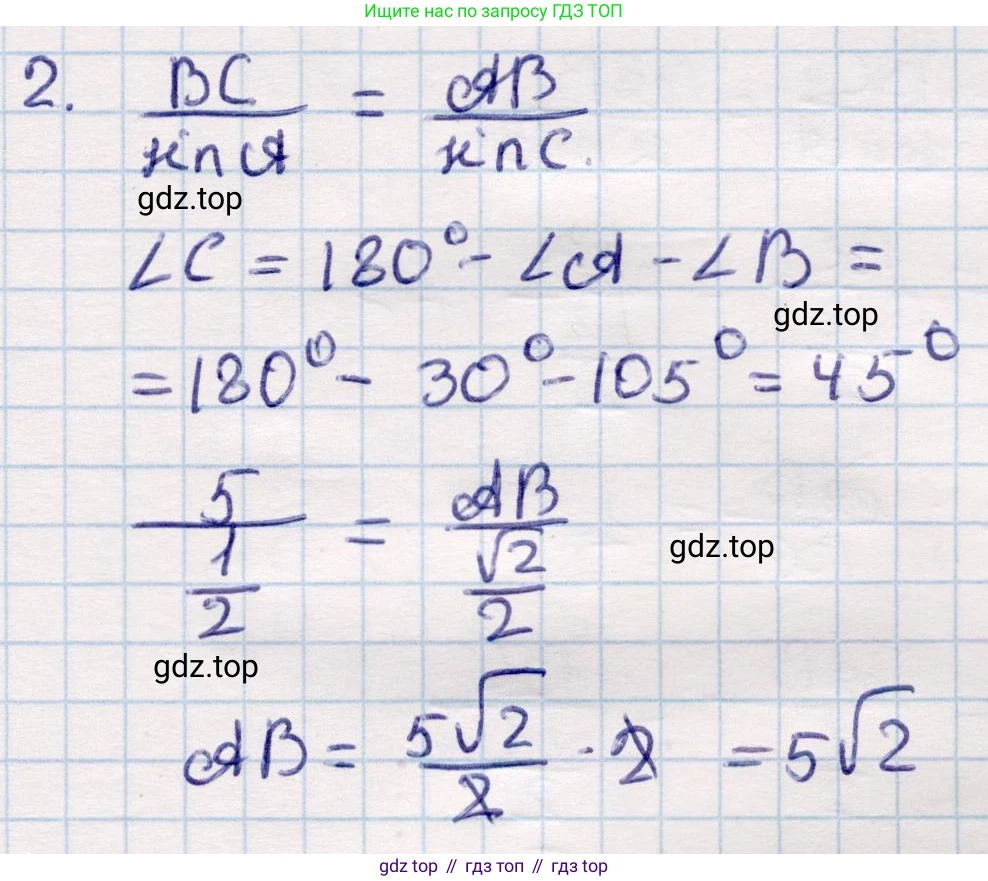 Ищите нас по запросу ГДЗ ТОП
2. BC/sin A = AB/sin C.
gdz.top
∠C = 180° - ∠A - ∠B =
gdz.top
= 180° - 30° - 105° = 45°
5/(1/2) = AB/(√2/2)
gdz.top
gdz.top
AB = 5√2/2 · 2 = 5√2
gdz top // гдз топ // гдз top